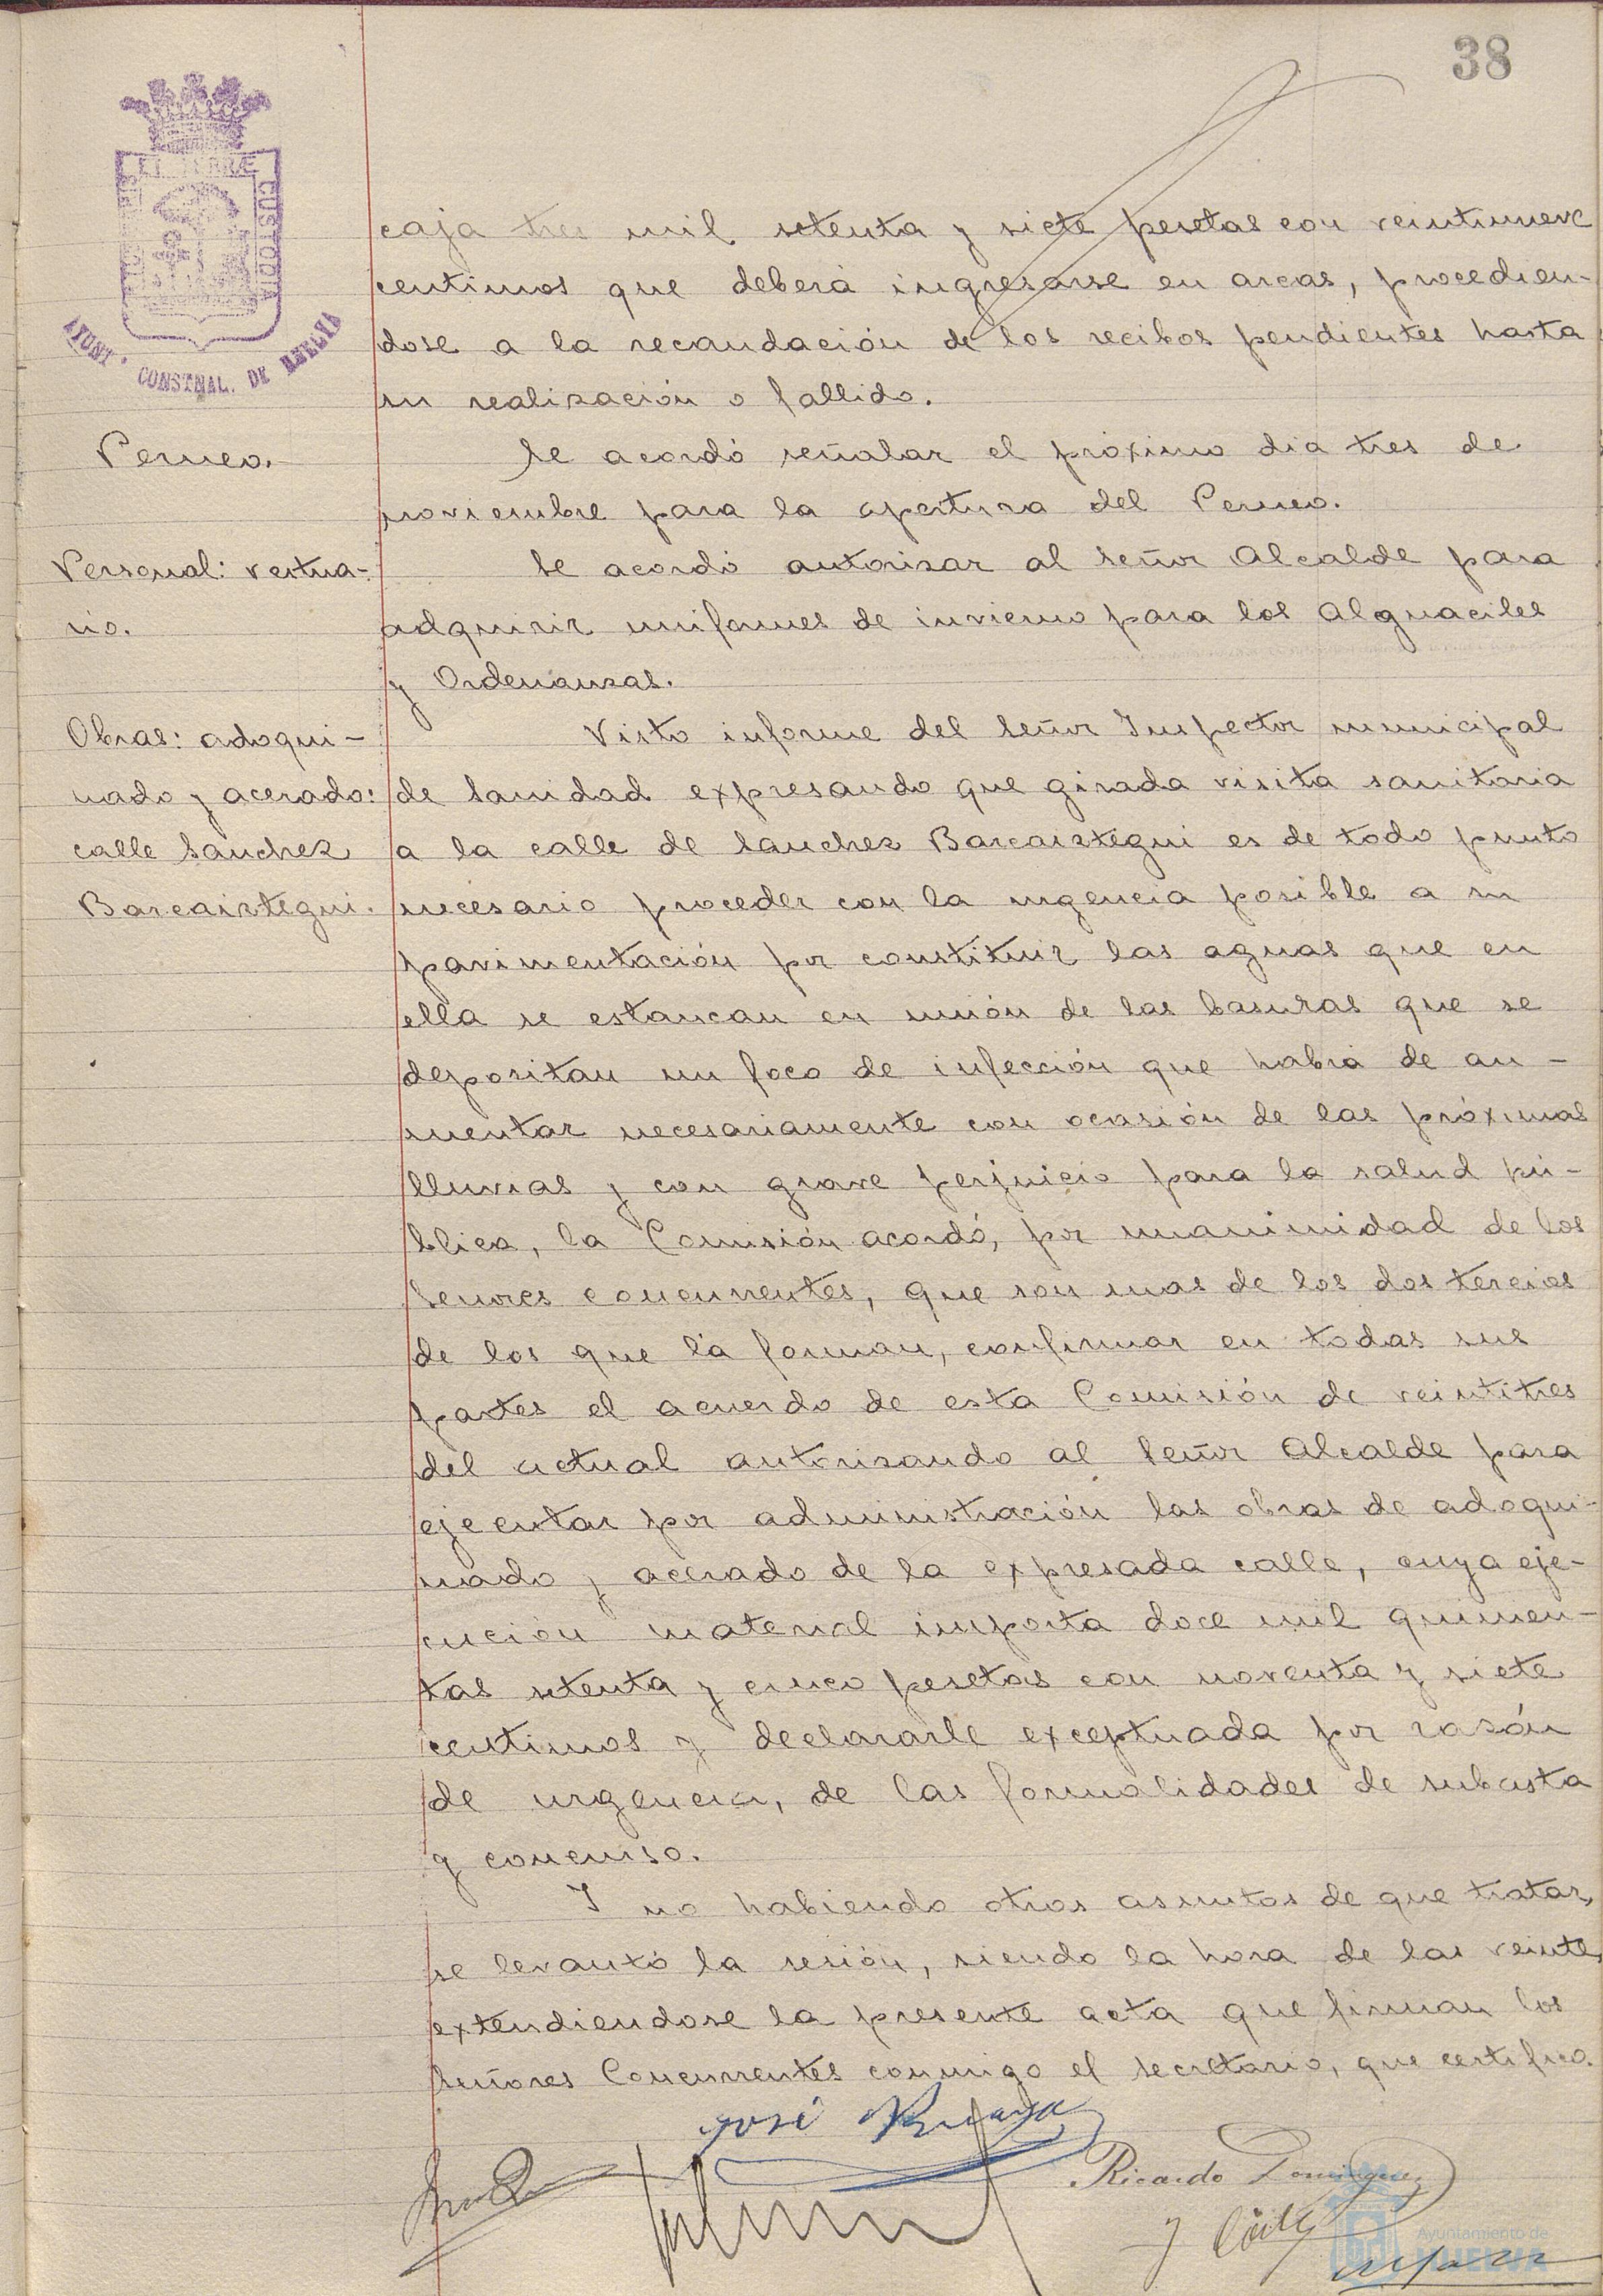 38
PORTUS MARIS
ET TERRÆ
CUSTODIA
AYUNT. CONSTNAL. DE HUELVA
caja tres mil setenta y siete pesetas con veintinueve
centimos que deberá ingresarse en arcas, procedien-
dose a la recaudación de los recibos pendientes hasta
su realización o fallido.
Perneo.
Se acordó señalar el próximo dia tres de
noviembre para la apertura del Perneo.
Personal: vestua-
rio.
Se acordó autorizar al señor Alcalde para
adquirir uniformes de invierno para los Alguaciles
y Ordenanzas.
Obras: adoqui-
nado y acerado:
calle Sanchez
Barcaiztegui.
Visto informe del señor Inspector municipal
de Sanidad expresando que girada visita sanitaria
a la calle de Sanchez Barcaiztegui es de todo punto
necesario proceder con la urgencia posible a su
pavimentación por constituir las aguas que en
ella se estancan en unión de las basuras que se
depositan un foco de infección que habrá de au-
mentar necesariamente con ocasión de las próximas
lluvias y con grave perjuicio para la salud pú-
blica, la Comisión acordó, por unanimidad de los
señores concurrentes, que son mas de los dos tercios
de los que la forman, confirmar en todas sus
partes el acuerdo de esta Comisión de veintitres
del actual autorizando al señor Alcalde para
ejecutar por administración las obras de adoqui-
nado y acerado de la expresada calle, cuya eje-
cución material importa doce mil quinien-
tas setenta y cinco pesetas con noventa y siete
centimos y declararle exceptuada por razón
de urgencia, de las formalidades de subasta
y concurso.
Y no habiendo otros asuntos de que tratar,
se levantó la sesión, siendo la hora de las veinte,
extendiendose la presente acta que firman los
señores Concurrentes conmigo el secretario, que certifico.
José
Ricardo Dominguez
Ayuntamiento de
HUELVA